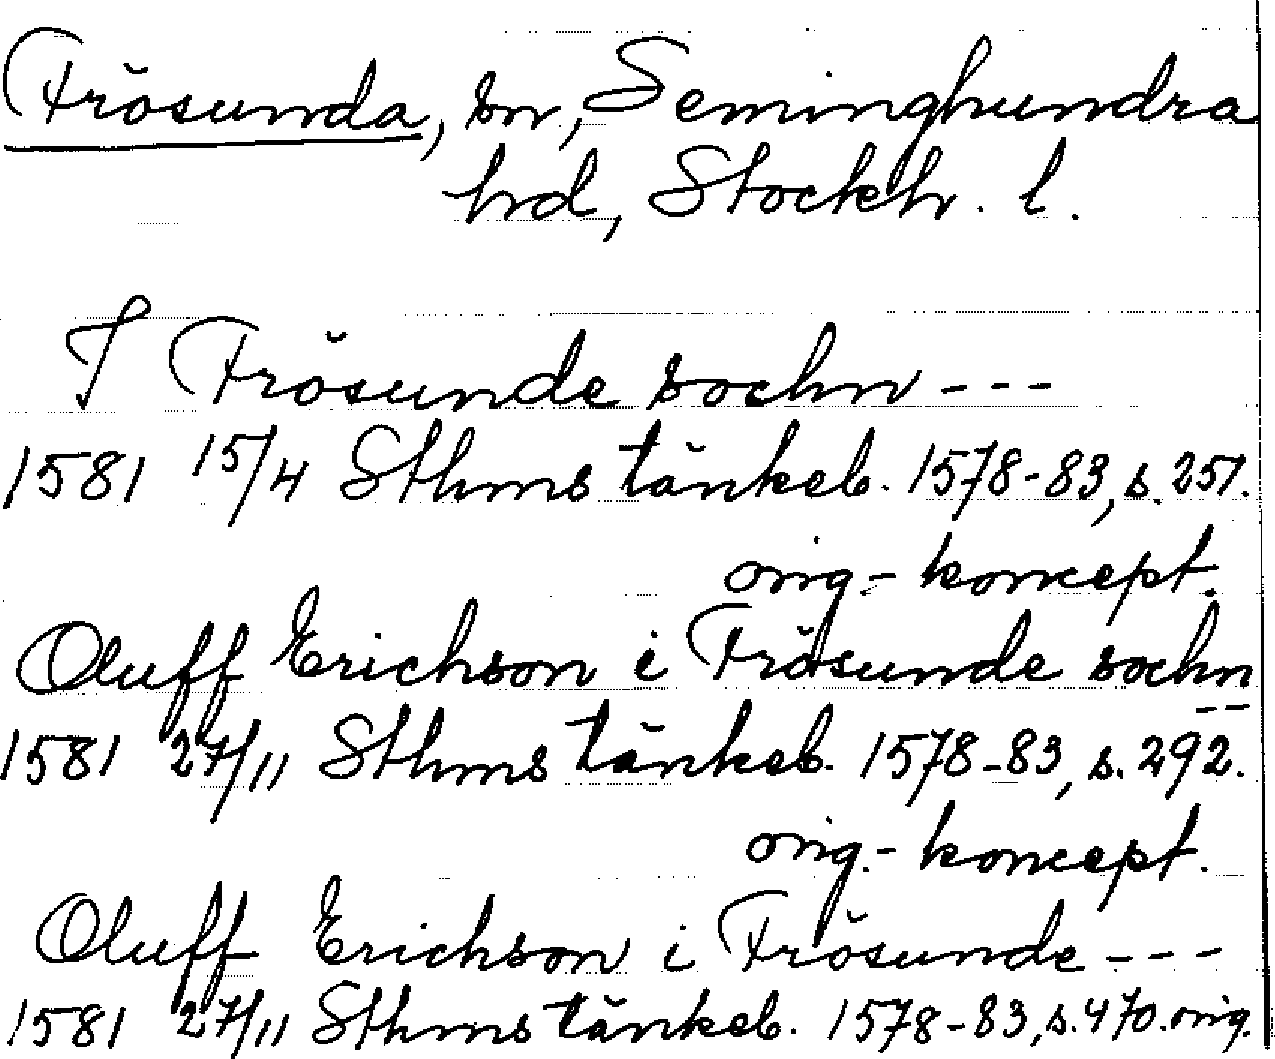 Frösunda, sn, Seminghundra
hd, Stockh. l.
I Frösunde sochn ---
1581 15/4 Sthms tänkeb. 1578-83, s. 251.
orig.-koncept.
Oluff Erichson i Frösunde sochn --
1581 27/11 Sthms tänkeb. 1578-83, s. 292.
orig.-koncept.
Oluff Erichson i Frösunde ---
1581 27/11 Sthms tänkeb. 1578-83, s. 470. orig.